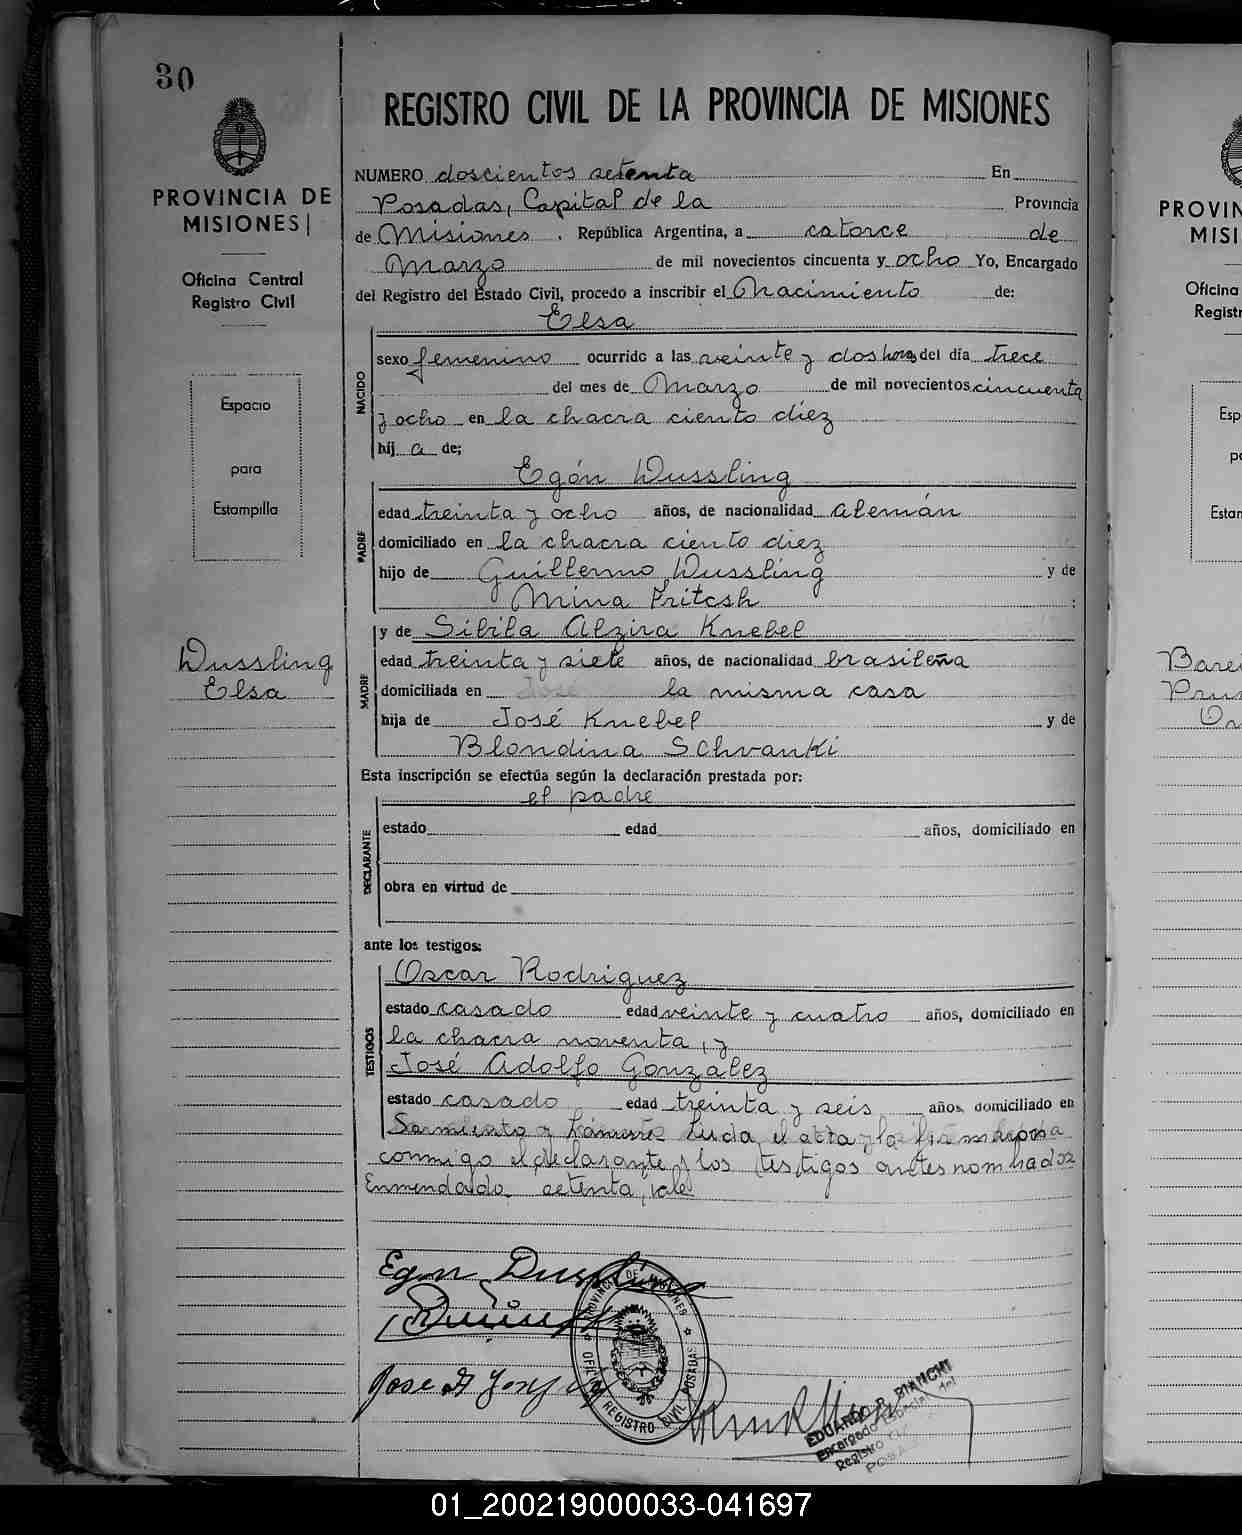 30
PROVINCIA DE
MISIONES
Oficina Central
Registro Civil
Espacio
para
Estampilla
Wussling
Elsa
REGISTRO CIVIL DE LA PROVINCIA DE MISIONES
NUMERO doscientos setenta En
Posadas, Capital de la Provincia
de Misiones . República Argentina, a catorce de
Marzo de mil novecientos cincuenta y ocho Yo, Encargado
del Registro del Estado Civil, procedo a inscribir el Nacimiento de:
Elsa
NACIDO
sexo femenino ocurrido a las veinte y dos horas del día trece
del mes de Marzo de mil novecientos cincuenta
y ocho en la chacra ciento diez
hij a de;
Egón Wussling
PADRE
edad treinta y ocho años, de nacionalidad alemán
domiciliado en la chacra ciento diez
hijo de Guillermo Wussling y de
Mina Pritcsh :
y de Sibila Alzira Knebel
MADRE
edad treinta y siete años, de nacionalidad brasileña
domiciliada en la misma casa
hija de José Knebel y de
Blondina Schvanki
Esta inscripción se efectúa según la declaración prestada por:
el padre
DECLARANTE
estado edad años, domiciliado en
obra en virtud de
ante los testigos:
Oscar Rodriguez
TESTIGOS
estado casado edad veinte y cuatro años, domiciliado en
la chacra noventa, y
José Adolfo González
estado casado edad treinta y seis años, domiciliado en
Sarmiento y Leida el acta la firman
conmigo el declarante y los testigos antes nombrados
Enmendado setenta, vale
Egon Wussling
Jose A Gonzalez
PROVINCIA DE MISIONES
OFICINA REGISTRO CIVIL POSADAS
EDUARDO R. BIANCHI
Encargado Especial del
Registro
POSA
PROVIN
MISI
Oficina
Registr
Esp
pa
Estan
Barei
01_200219000033-041697